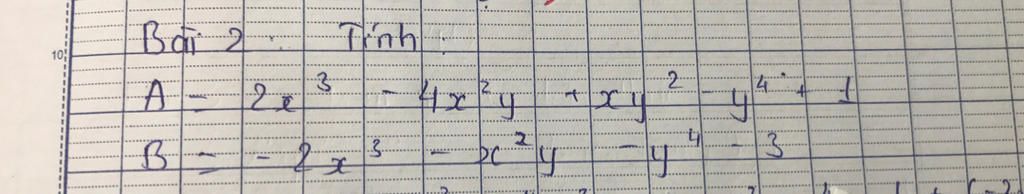 10
Bài 2. Tính:
A = 2x³ - 4x²y + xy² - y⁴ + 1
B = -2x³ - x²y - y⁴ - 3